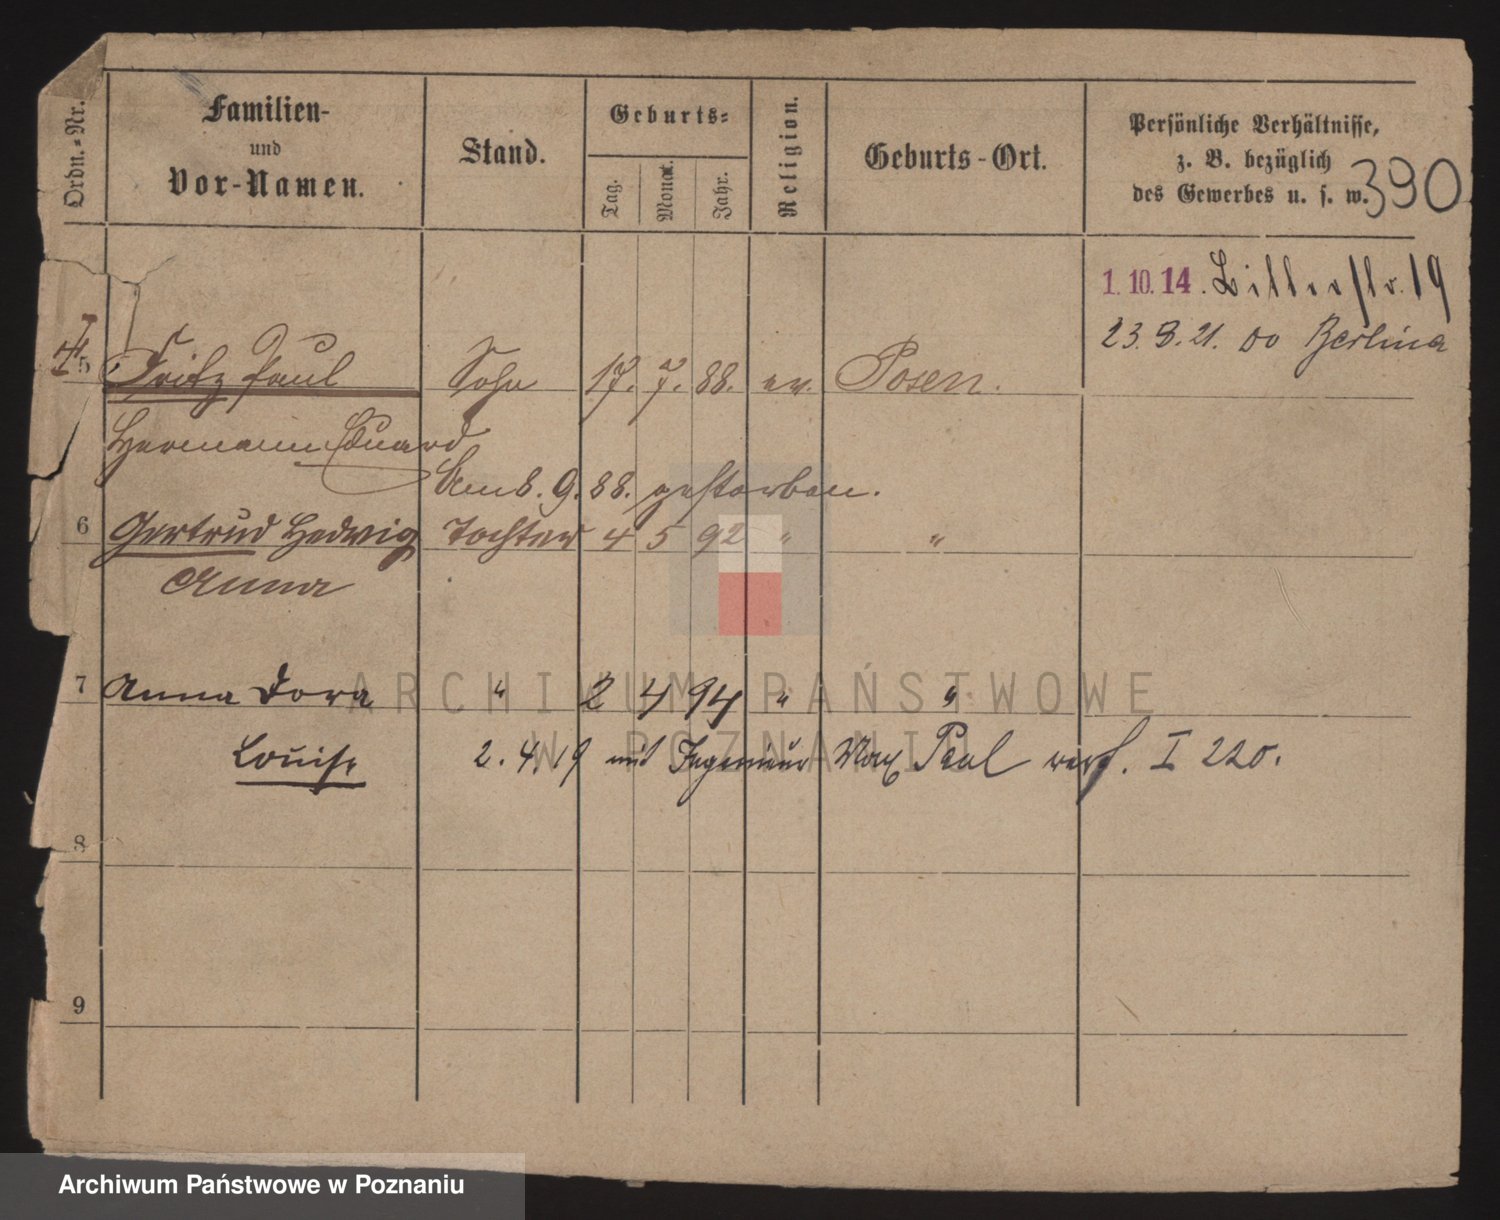 Ordn.-Nr.
Familien-
und
Vor-Namen.
Stand.
Geburts-
Tag.
Monat.
Jahr.
Religion.
Geburts-Ort.
Persönliche Verhältnisse,
z. B. bezüglich
des Gewerbes u. s. w.
390
1. 10. 14. 19
23. 9. 21. do Berlina
5 Fritz Paul Sohn 17. 7. 88. ev. Posen.
Hermann Eduard
Am 8. 9. 88. gestorben.
6 Gertrud Hedwig Tochter 4 5 92 " "
Anna
7 Anna Dora " 2 4 94 " "
Louise 2. 4. 19 mit Ingenieur Max verh. I 220.
8
9
ARCHIWUM PAŃSTWOWE
W POZNANIU
Archiwum Państwowe w Poznaniu